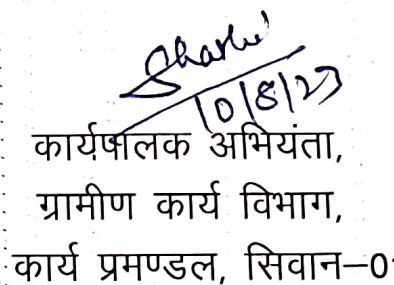 10/8/23
कार्यपालक अभियंता,
ग्रामीण कार्य विभाग,
कार्य प्रमण्डल, सिवान–0